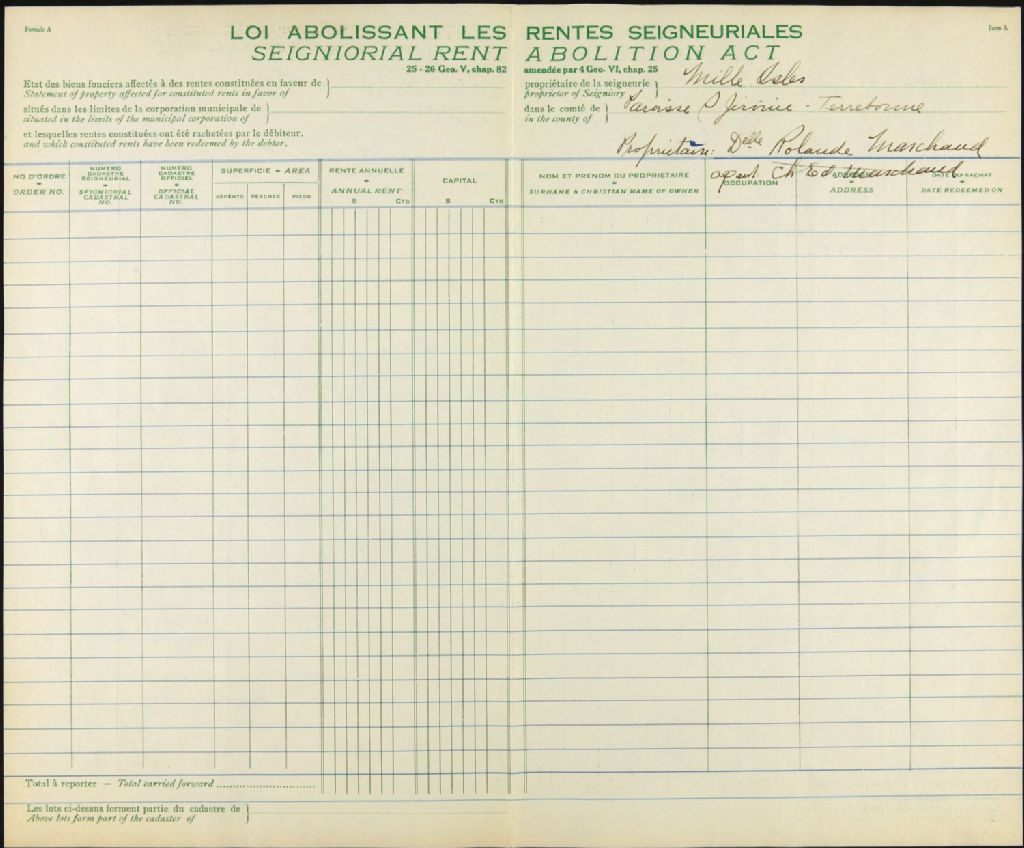 Formule A
Form A
LOI ABOLISSANT LES RENTES SEIGNEURIALES
SEIGNIORIAL RENT ABOLITION ACT
25 - 26 Geo. V, chap. 82 amendée par 4 Geo. VI, chap. 25
Etat des biens fonciers affectés à des rentes constituées en faveur de
Statement of property affected for constituted rents in favor of
propriétaire de la seigneurie
proprietor of Seigniory
Mille Isles
situés dans les limites de la corporation municipale de
situated in the limits of the municipal corporation of
dans le comté de
in the county of
Paroisse St Jérôme - Terrebonne
et lesquelles rentes constituées ont été rachetées par le débiteur.
and which constituted rents have been redeemed by the debtor.
Propriétaire: Delle Rolande Marchand
agent Ch Ed. Marchand
NO D'ORDRE
ORDER NO.
NUMERO CADASTRE SEIGNEURIAL
SEIGNIORIAL CADASTRAL NO.
NUMERO CADASTRE OFFICIEL
OFFICIAL CADASTRAL NO.
SUPERFICIE - AREA
ARPENTS PERCHES PIEDS
RENTE ANNUELLE
ANNUAL RENT
$ Cts
CAPITAL
$ Cts
NOM ET PRENOM DU PROPRIETAIRE
SURNAME & CHRISTIAN NAME OF OWNER
OCCUPATION
ADRESSE
ADDRESS
DATE DU RACHAT
DATE REDEEMED ON
Total à reporter — Total carried forward
Les lots ci-dessus forment partie du cadastre de
Above lots form part of the cadaster of